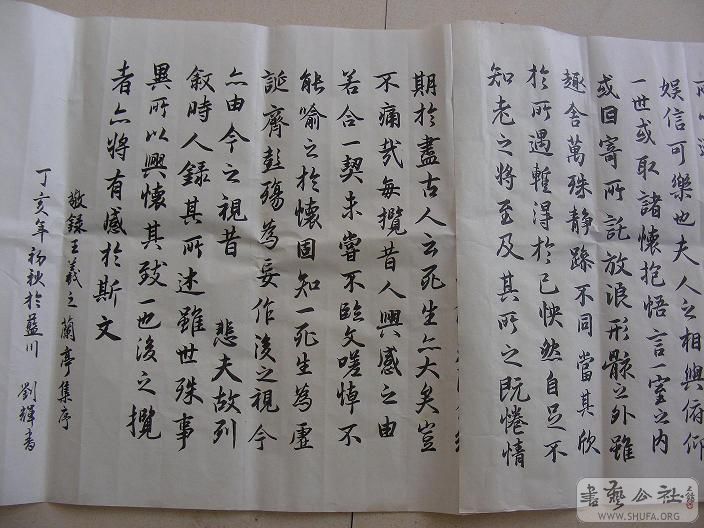 娱信可樂也夫人之相與俯仰
一世或取諸懷抱悟言一室之内
或因寄所託放浪形骸之外雖
趣舍萬殊静躁不同當其欣
於所遇暫得於己怏然自足不
知老之將至及其所之既惓情
期於盡古人云死生亦大矣豈
不痛哉每攬昔人興感之由
若合一契未嘗不臨文嗟悼不
能喻之於懷固知一死生為虛
誕齊彭殤為妄作後之視今
亦由今之視昔 悲夫故列
叙時人録其所述雖世殊事
異所以興懷其致一也後之攬
者亦將有感於斯文
敬錄王羲之蘭亭集序
丁亥年初秋於藍川 劉輝書
書藝公社
WWW.SHUFA.ORG